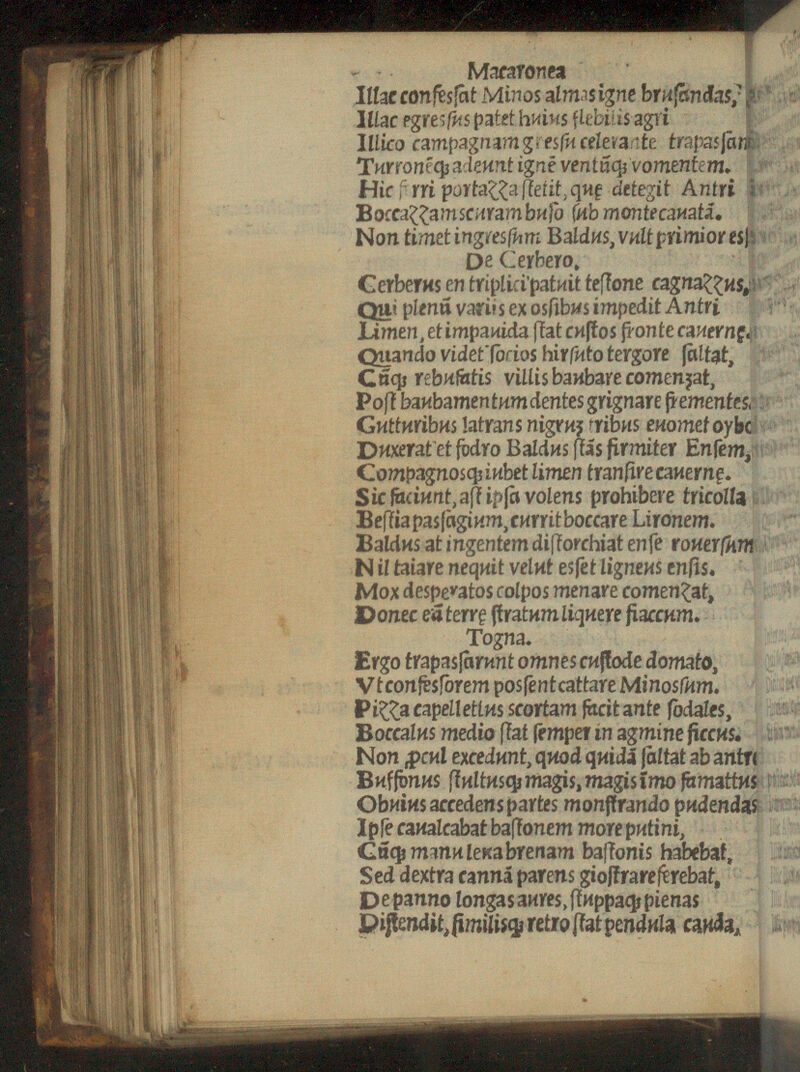 Macaronea
Illac confesſat Minos almas igne bruſandas,
Illac egresſus patet huius flebilis agri
Illico campagnam gresſu celerante trapasſant
Turronēqꝫ adeunt ignē ventūqꝫ vomentem.
Hic ferri portazza ſtetit, quę detegit Antri
Boccazzam scuram buſo ſub monte cauatā.
Non timet ingresſum Baldus, vult primior esſe
De Cerbero,
Cerberus en triplici patuit teſtone cagnazzus,
Qui plenū variis ex osſibus impedit Antri
Limen, et impauida ſtat cuſtos fronte cauernę.
Quando videt ſocios hirſuto tergore ſaltat,
Cūqꝫ rebufatis villis baubare comenzat,
Poſt baubamentum dentes grignare frementes.
Gutturibus latrans nigruꝫ tribus euomet
Duxerat et fodro Baldus ſtās firmiter Enſem,
Compagnosqꝫ iubet limen tranſire cauernę.
Sic faciunt, aſt ipſa volens prohibere tricolla
Beſtia pasſagium, currit boccare Lironem.
Baldus at ingentem diſtorchiat enſe rouerſum
Nil taiare nequit velut esſet ligneus enſis.
Mox desperatos colpos menare comenzat,
Donec eā terrę ſtratum liquere fiaccum.
Togna.
Ergo trapasſarunt omnes cuſtode domato,
Vt confesſorem posſent cattare Minosſum.
Pizza capelletius scortam facit ante ſodales,
Boccalus medio ſtat ſemper in agmine ficcus.
Non ꝓcul excedunt, quod quidā ſaltat ab antro
Buffonus ſtultusqꝫ magis, magis īmo famattus
Obuius accedens partes monſtrando pudendas
Ipſe caualcabat baſtonem more putini,
Cūqꝫ manu leua brenam baſtonis habebat,
Sed dextra cannā parens gioſtrare ferebat,
De panno longas aures, ſtuppaqꝫ pienas
Diſtendit, ſimilisqꝫ retro ſtat pendula cauda,